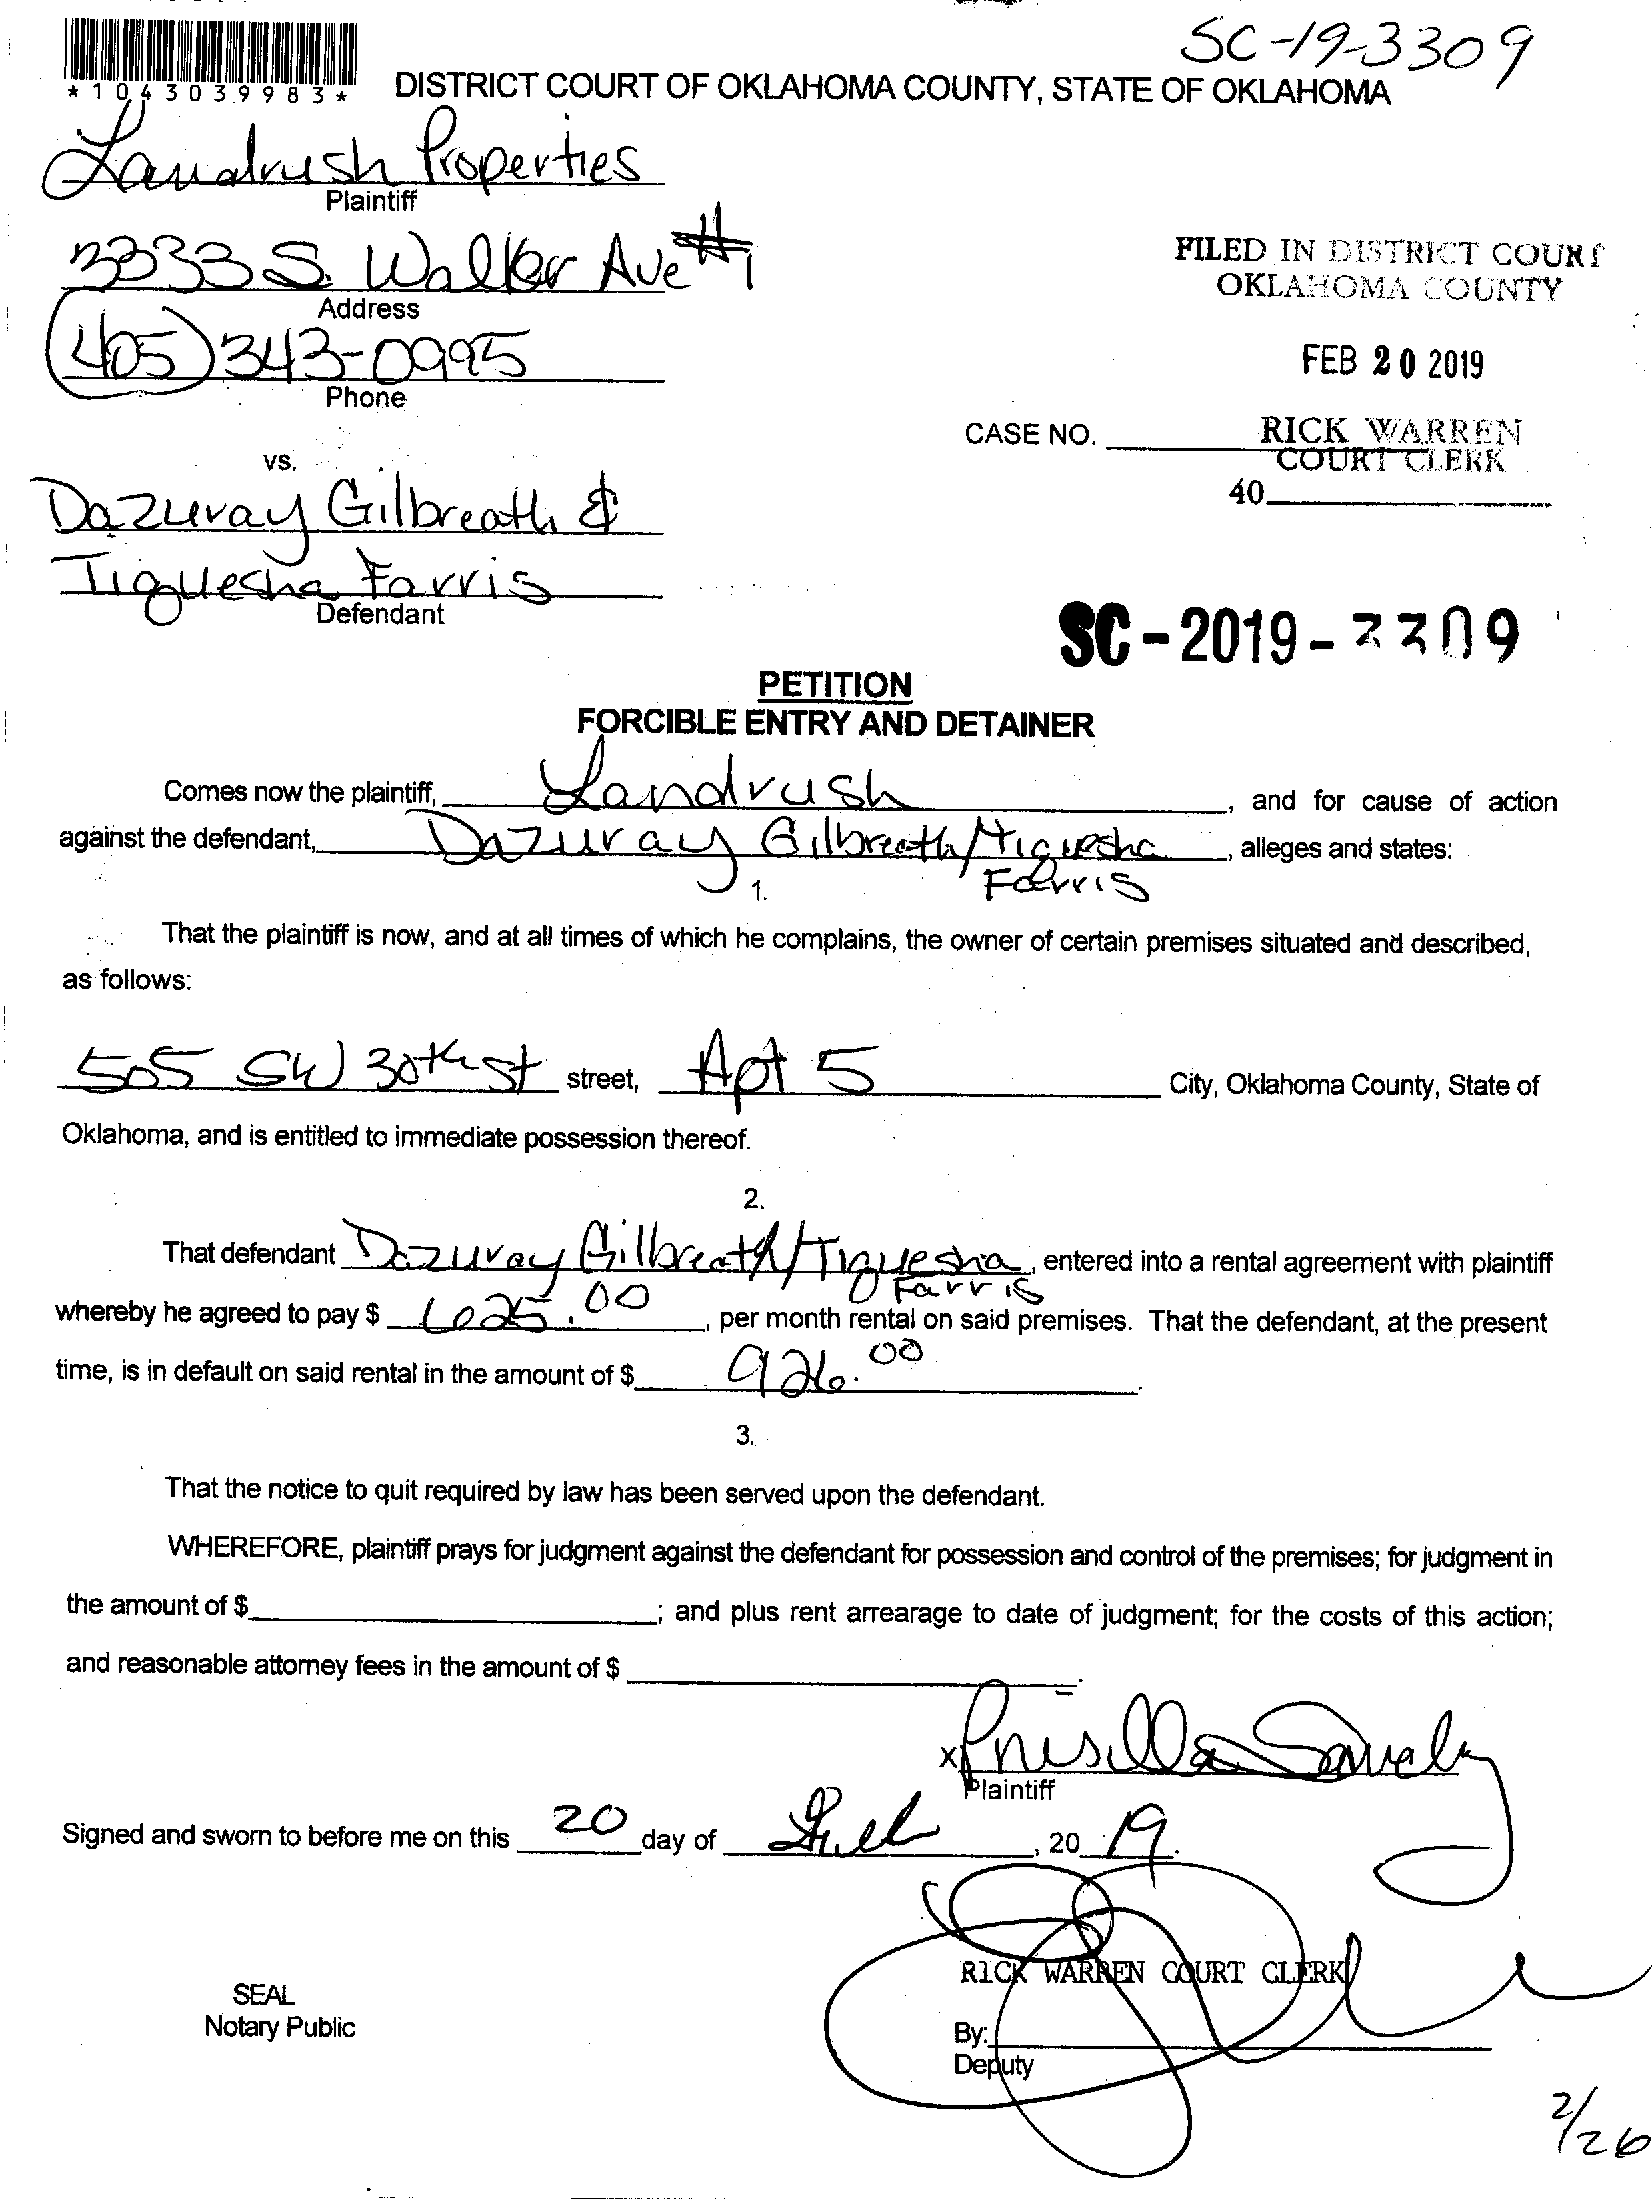 SC-19-3309
*1043039983*
DISTRICT COURT OF OKLAHOMA COUNTY, STATE OF OKLAHOMA
Landrush Properties
Plaintiff
3333 S. Walker Ave #1
Address
(405) 343-0995
Phone
FILED IN DISTRICT COURT
OKLAHOMA COUNTY
FEB 20 2019
RICK WARREN
COURT CLERK
CASE NO.
40
vs.
Dazuray Gilbreath &
Tiquesha Farris
Defendant
SC-2019-3309
PETITION
FORCIBLE ENTRY AND DETAINER
Comes now the plaintiff, Landrush, and for cause of action
against the defendant, Dazuray Gilbreath/Tiquesha, alleges and states:
Farris
1.
That the plaintiff is now, and at all times of which he complains, the owner of certain premises situated and described,
as follows:
505 SW 30th St street, Apt 5 City, Oklahoma County, State of
Oklahoma, and is entitled to immediate possession thereof.
2.
That defendant Dazuray Gilbreath/Tiquesha, entered into a rental agreement with plaintiff
Farris
whereby he agreed to pay $ 625.00, per month rental on said premises. That the defendant, at the present
time, is in default on said rental in the amount of $ 926.00.
3.
That the notice to quit required by law has been served upon the defendant.
WHEREFORE, plaintiff prays for judgment against the defendant for possession and control of the premises; for judgment in
the amount of $ ; and plus rent arrearage to date of judgment; for the costs of this action;
and reasonable attorney fees in the amount of $ .
x Prisilla
Plaintiff
Signed and sworn to before me on this 20 day of , 20 19.
RICK WARREN COURT CLERK
SEAL
Notary Public
By:
Deputy
2/26